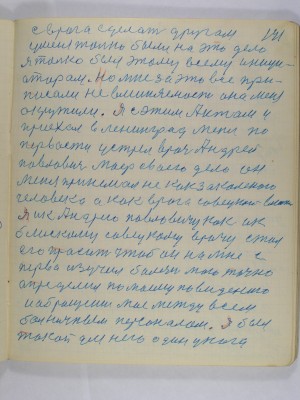 с врага сделат другам 141
умел точно были на это дело
я толко был этому всему иници-
аторам. Но мне за это всё при-
писали не вменяемость она меня
окружили. Я с этим Актам и
приехал в Ленинград меня по
первости устрел врач Андрей
павлович мастер своего дело он
меня принемал не как законого
человека а как врага советской власти
Я и к Андрею павловичу как и к
блискому савецкому врачу стал
его прасит чтоб он на мне с
перва изучил балезн маю точно
определил по маему поведению
и абращении мое между всем
болничным персоналам. Я был
такой для него один у нога